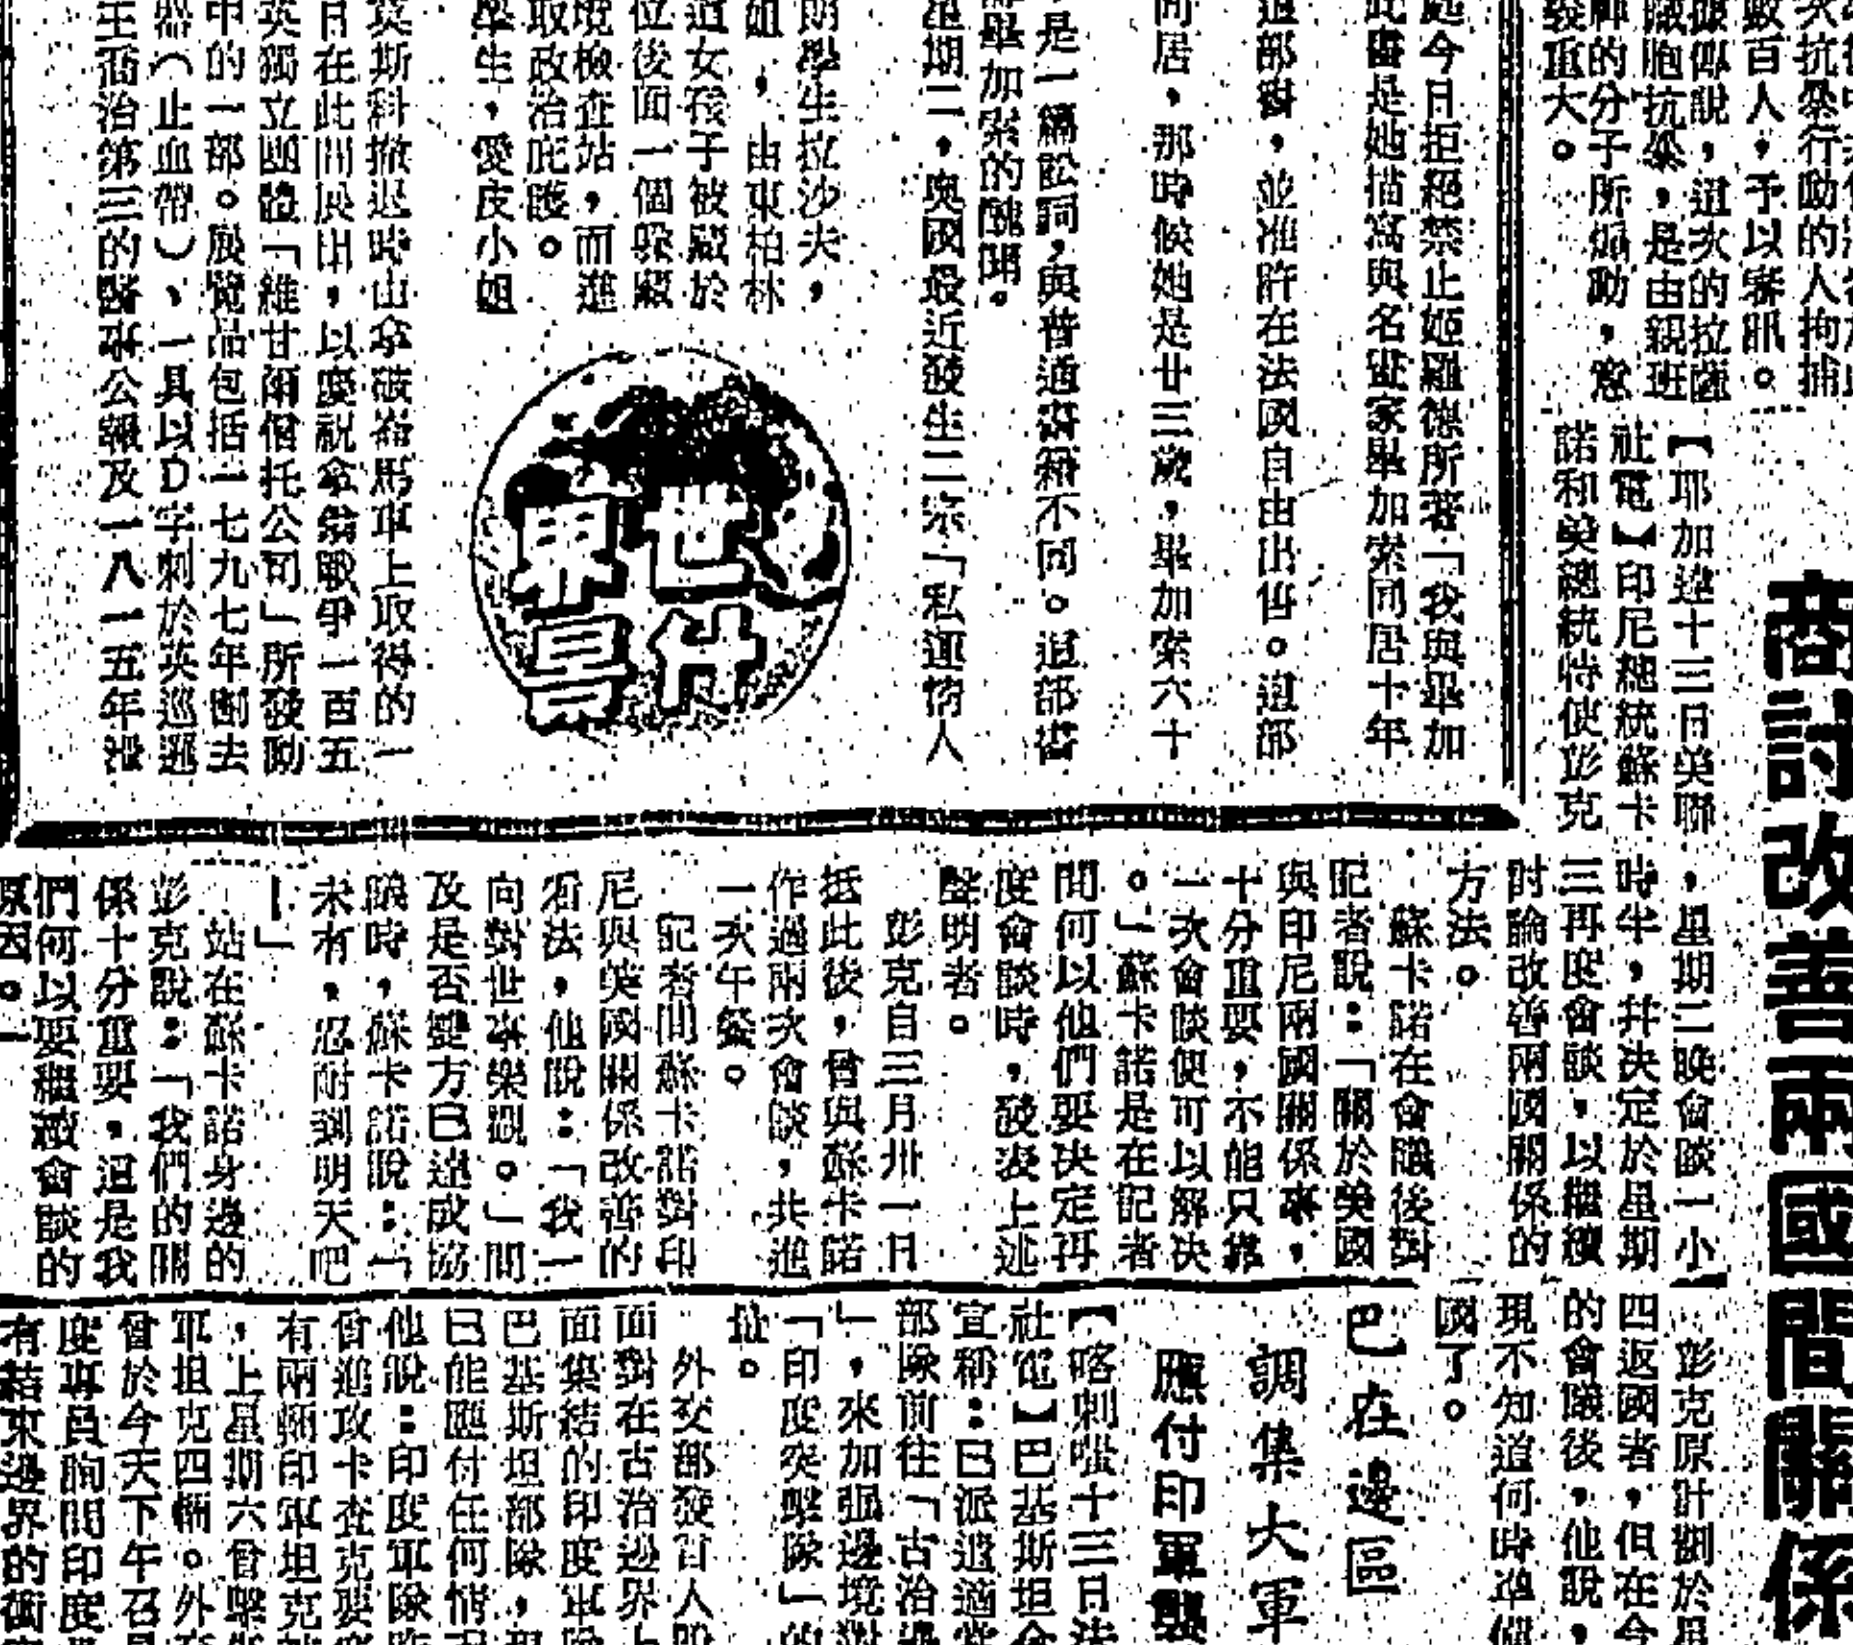 商討改善兩國間關係
【耶加達十三日美聯
社電】印尼總統蘇卡
諾和美總統特使彭克
，星期二晚會談一小
時半，幷決定於星期
三再度會談，以繼續
討論改善兩國關係的
方法。
蘇卡諾在會議後對
記者說：「關於美國
與印尼兩國關係事，
十分重要，不能只靠
一次會談便可以解決
。」蘇卡諾是在記者
問何以他們要決定再
度會談時，發表上述
聲明者。
彭克自三月卅一日
抵此後，曾與蘇卡諾
作過兩次會談，共進
一次午餐。
記者問蘇卡諾對印
尼與美國關係改善的
看法，他說：「我一
向對世事樂觀。」問
及是否雙方已達成協
議時，蘇卡諾說：「
未有，忍耐到明天吧
！」
站在蘇卡諾身邊的
彭克說：「我們的關
係十分重要，這是我
們何以要繼續會談的
原因。」
彭克原計劃於星
四返國者，但在今
的會議後，他說，
現不知道何時準備
國了。
數百人，予以審訊。
據傳說，這次的拉薩
藏胞抗暴，是由親班
禪的分子所煽動，意
義重大。
起今日拒絕禁止姬羅德所著「我與畢加
此書是她描寫與名畫家畢加索同居十年
這部書，並准許在法國自由出售。這部
同居，那時候她是廿三歲，畢加索六十
是一篇訟詞，與普通書籍不同。這部書
畢加索的醜聞。
星期二，奧國最近發生二宗「私運情人
朗學生拉沙夫，
姐，由東柏林
這女孩子被藏於
位後面一個躲藏
境檢查站，而進
取政治庇護。
學生，愛皮小姐
世界
件
莫斯科撤退時由拿破崙馬車上取得的一
日在此間展出，以慶祝拿翁戰爭一百五
英獨立團體「維甘爾僧托公司」所發動
中的一部。展覽品包括一七九七年割去
器（止血帶）、一具以D字刺於英巡邏
王喬治第三的醫事公報及一八一五年報
巴在邊區
調集大軍
應付印軍襲
【喀剌蚩十三日法
社電】巴基斯坦今
宣稱：已派遣適當
部隊前往「古治邊
」，來加强邊境對
「印度突擊隊」的
外交部發言人說
面對在古治邊界上
面集結的印度軍隊
巴基斯坦部隊，現
已能應付任何情況
他說：印度軍隊昨
曾進攻卡查克要塞
有兩輛印軍坦克被
，上星期六曾擊
軍坦克四輛。外交
曾於今天下午召見
度專員詢問印度
有結束邊界的衝